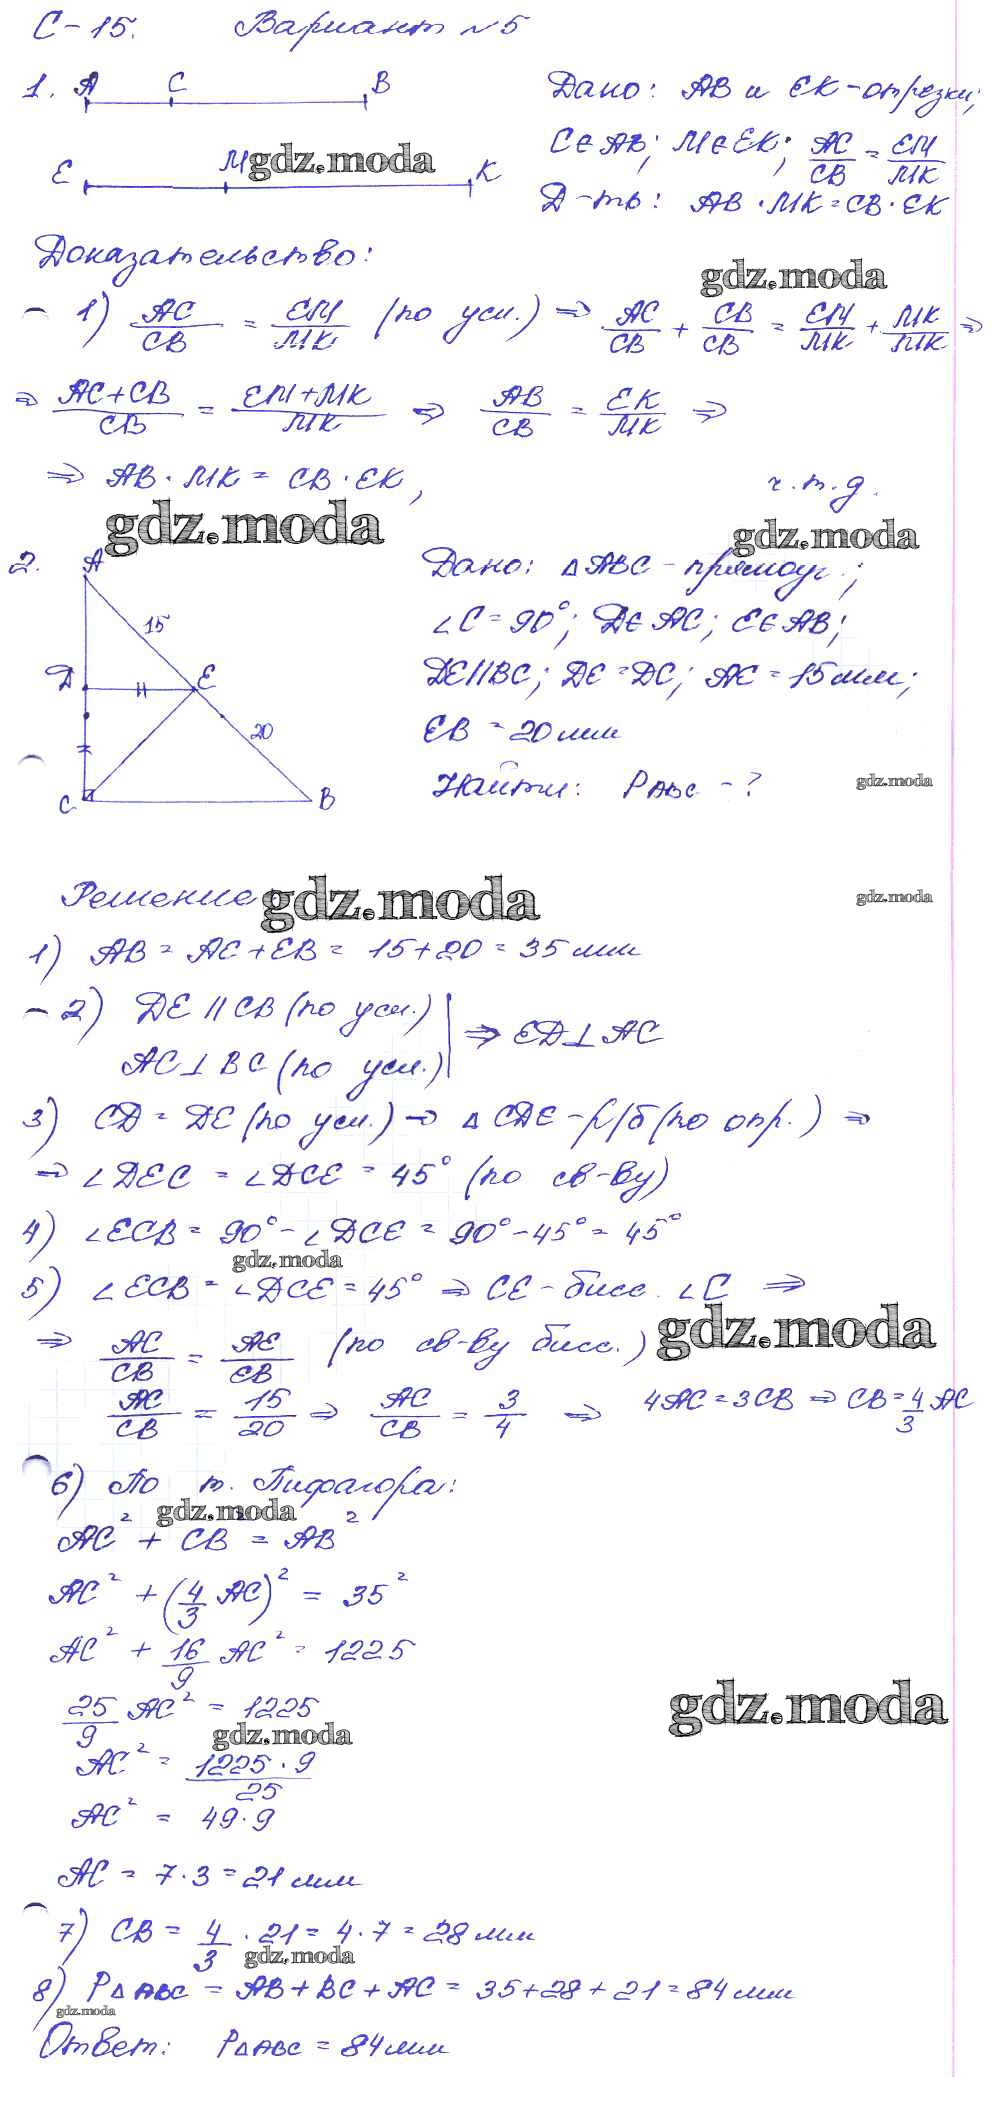 С-15. Вариант №5
1. A C B
Дано: AB и EK-отрезки;
E M K
gdz.moda
C∈AB; M∈EK; AC/CB = EM/MK
Д-ть: AB·MK=CB·EK
Доказательство:
gdz.moda
1) AC/CB = EM/MK (по усл.) ⇒ AC/CB + CB/CB = EM/MK + MK/MK ⇒
⇒ (AC+CB)/CB = (EM+MK)/MK ⇒ AB/CB = EK/MK ⇒
⇒ AB·MK = CB·EK, ч.т.д.
gdz.moda
gdz.moda
2. A
Дано: △ABC-прямоуг.;
15
∠C=90°; D∈AC; E∈AB;
D E
DE∥BC; DE=DC; AE=15мм;
20
EB=20мм
C B
Найти: P ABC - ?
gdz.moda
Решение
gdz.moda
gdz.moda
1) AB = AE+EB = 15+20 = 35 мм
2) DE ∥ CB (по усл.)
AC⊥BC (по усл.) | ⇒ ED⊥AC
3) CD = DE (по усл.) ⇒ △CDE-р/б (по опр.) ⇒
⇒ ∠DEC = ∠DCE = 45° (по св-ву)
4) ∠ECB = 90°-∠DCE = 90°-45° = 45°
gdz.moda
5) ∠ECB = ∠DCE = 45° ⇒ CE-бисс. ∠C ⇒
⇒ AC/CB = AE/EB (по св-ву бисс.)
gdz.moda
AC/CB = 15/20 ⇒ AC/CB = 3/4 ⇒ 4AC=3CB ⇒ CB=4/3 AC
6) По т. Пифагора:
gdz.moda
AC² + CB² = AB²
AC² + (4/3 AC)² = 35²
AC² + 16/9 AC² = 1225
25/9 AC² = 1225
gdz.moda
gdz.moda
AC² = 1225·9/25
AC² = 49·9
AC = 7·3 = 21 мм
7) CB = 4/3 · 21 = 4·7 = 28 мм
gdz.moda
8) P△ABC = AB+BC+AC = 35+28+21 = 84 мм
gdz.moda
Ответ: P△ABC = 84 мм